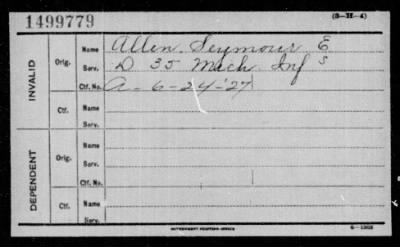 1499779 (3-II-4)
INVALID
Orig.
Name Allen, Seymour E
Serv. D 35 Mich Inf S
Ctf. No. A-6-24-'27
Ctf.
Name
Serv.
DEPENDENT
Orig.
Name
Serv.
Ctf. No.
Ctf.
Name
Serv.
GOVERNMENT PRINTING OFFICE